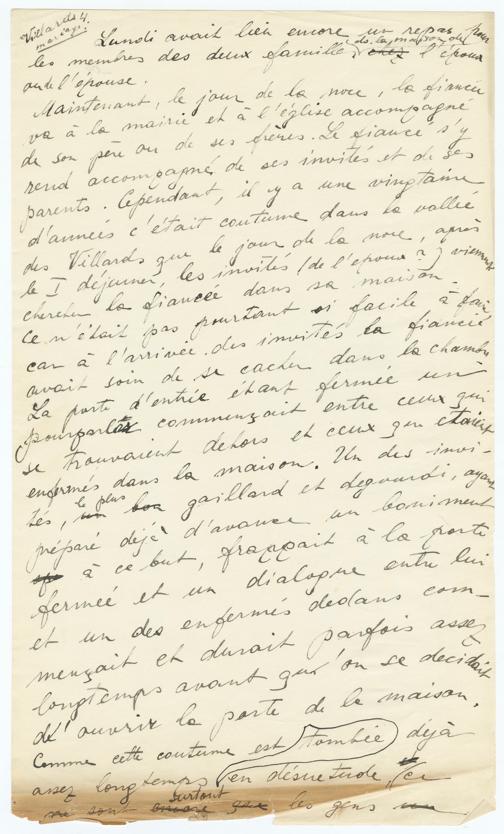 Villards 4.
mariage.
Lundi avait lieu encore un repas pour
les membres des deux famille ds la maison de chez l'époux
ou de l'épouse.
Maintenant, le jour de la noce, la fiancée
va à la mairie et à l'église accompagné
de son père ou de ses frères. Le fiancé s'y
rend accompagné de ses invités et de ses
parents. Cependant, il y a une vingtaine
d'années c'était coutume dans la vallée
des Villards que le jour de la noce, après
le I déjeuner, les invités (de l'époux) viennent
chercher la fiancée dans sa maison.
Ce n'était pas pourtant si facile à faire
car à l'arrivée des invités la fiancée
avait soin de se cacher dans la chambre
La porte d'entrée étant fermée un
pourparler commençait entre ceux qui
se trouvaient dehors et ceux que étaient
enfermés dans la maison. Un des invi-
tés, un bon le plus gaillard et dégourdi, ayant
préparé déjà d'avance un boniment
à ce but, frappait à la porte
fermeé et un dialogue entre lui
et un des enfermés dedans com-
mençait et durait parfois assez
longtemps avant qu'on se decidait
d'ouvrir la porte de la maison.
Comme cette coutume est tombée déjà
assez longtemps en désuetude, ce
ne sont surtout que les gens